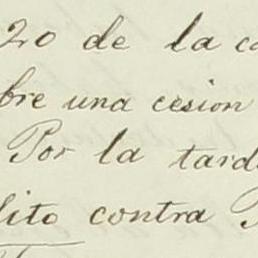 20 de la c
bre una cesion
Por la tard
lito contra